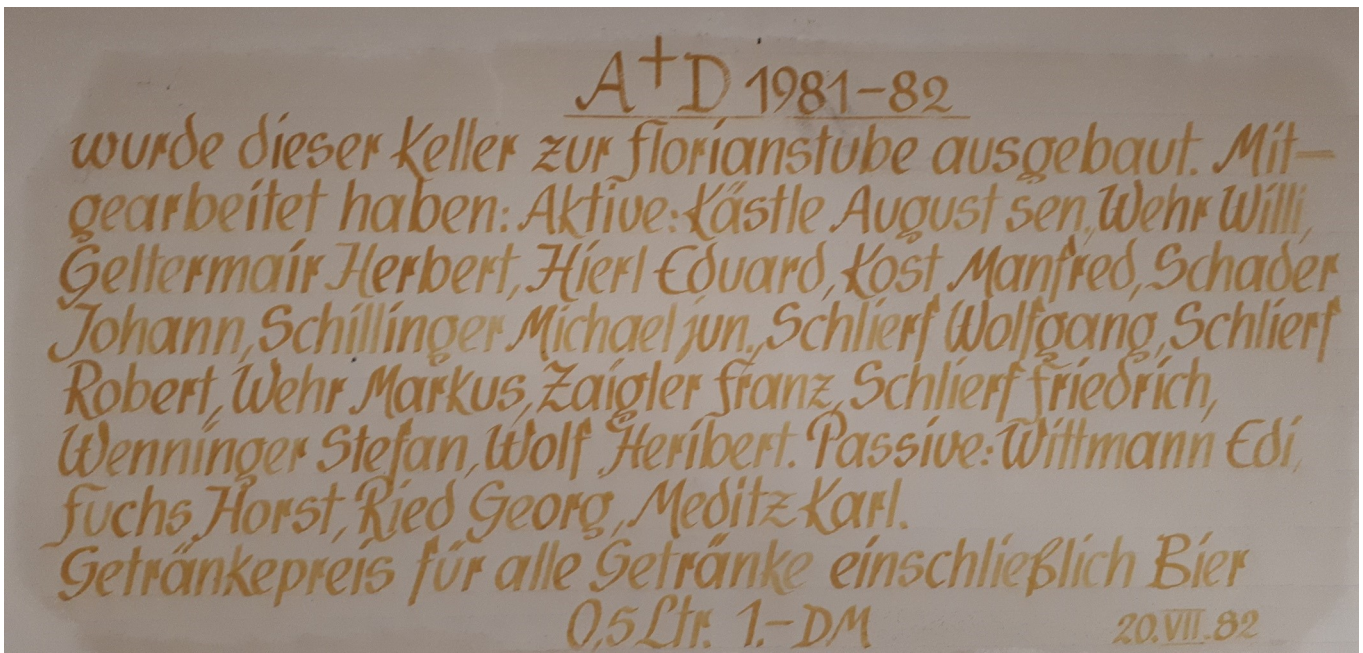 A+D 1981-82
wurde dieser Keller zur Florianstube ausgebaut. Mit-
gearbeitet haben: Aktive: Kästle August sen., Wehr Willi,
Geltermair Herbert, Hierl Eduard, Kost Manfred, Schader
Johann, Schillinger Michael jun., Schlierf Wolfgang, Schlierf
Robert, Wehr Markus, Zaigler Franz, Schlierf Friedrich,
Wenninger Stefan, Wolf Heribert. Passive: Wittmann Edi,
Fuchs Horst, Ried Georg, Meditz Karl.
Getränkepreis für alle Getränke einschließlich Bier
0,5 Ltr. 1.- DM 20.VII.82